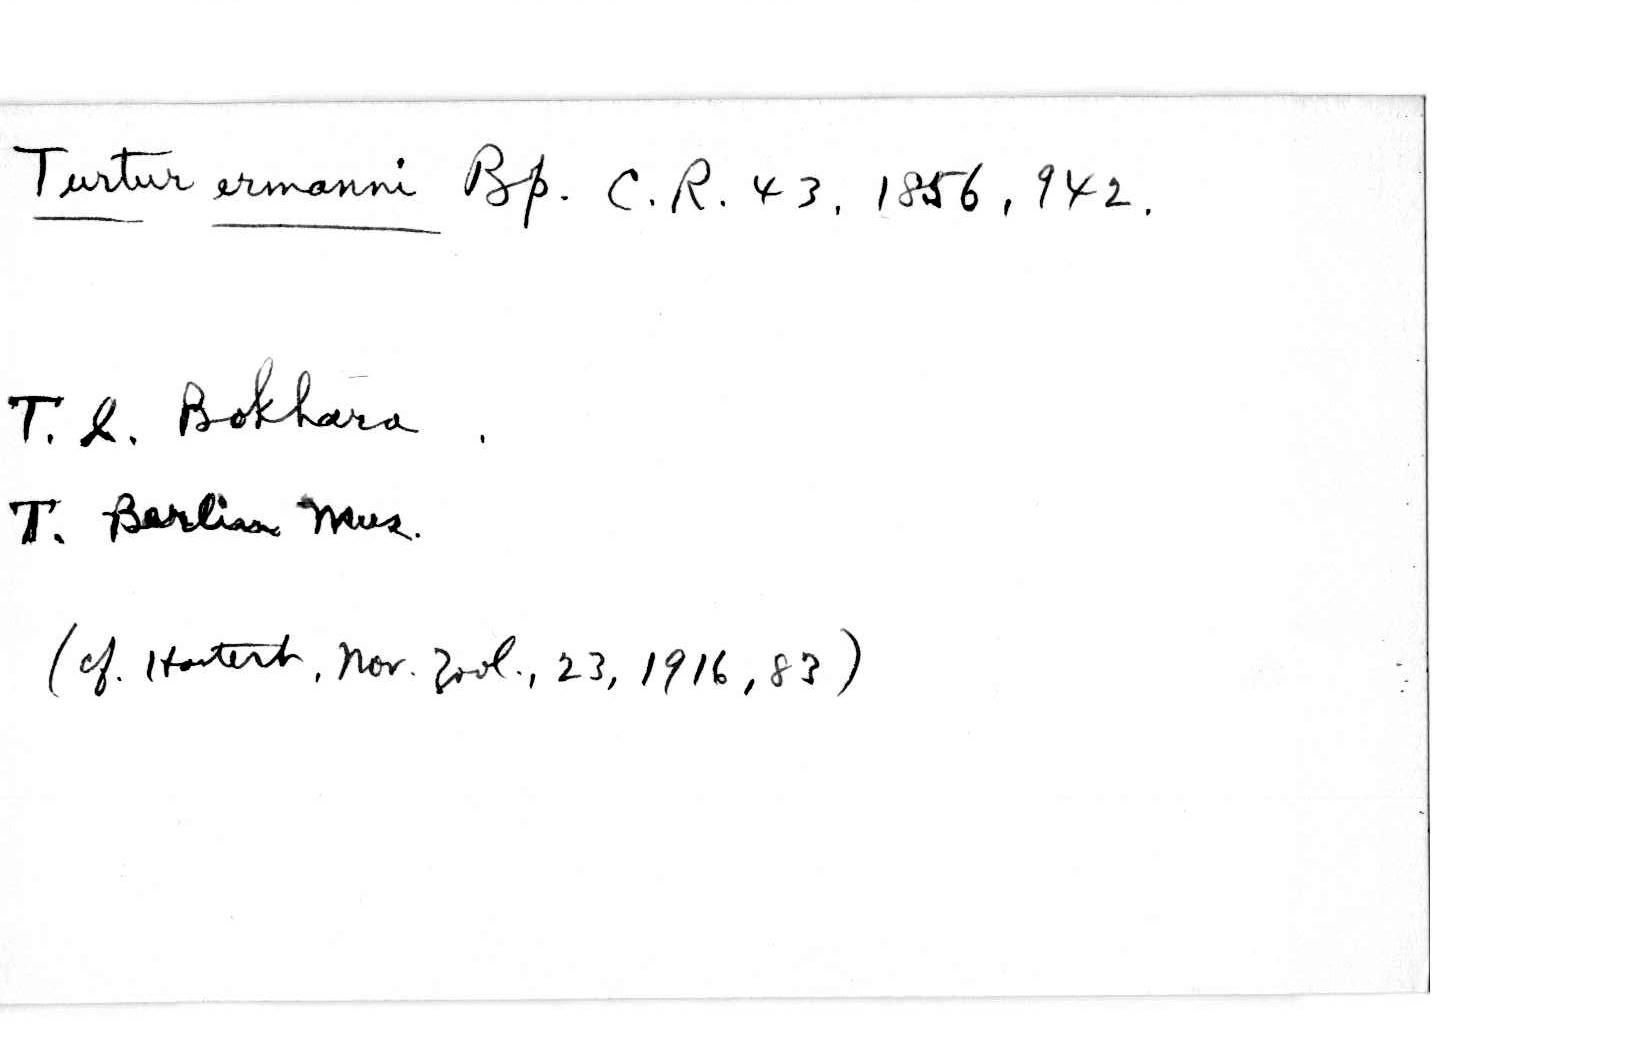 Turtur ermanni Bp. C.R. 43, 1856, 942.
T. l. Bokhara.
T. Berlin Mus.
(cf. Hartert, Nov. Zool., 23, 1916, 83)